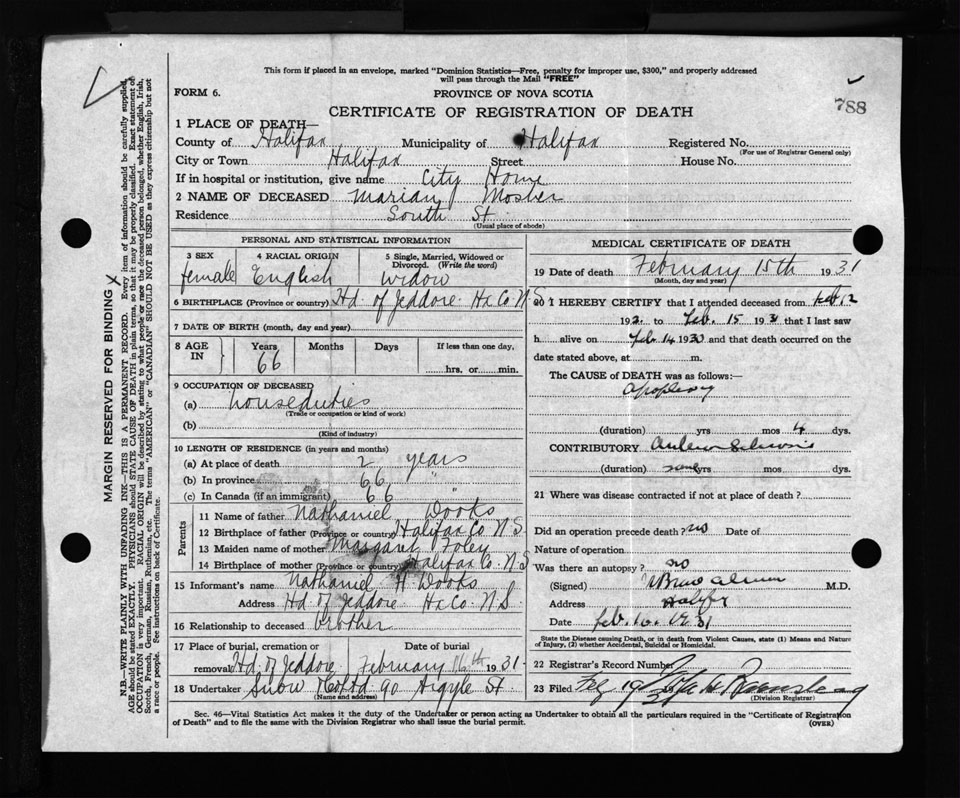 This form if placed in an envelope, marked "Dominion Statistics—Free, penalty for improper use, $300," and properly addressed
will pass through the Mail "FREE"
FORM 6.
PROVINCE OF NOVA SCOTIA
788
CERTIFICATE OF REGISTRATION OF DEATH
1 PLACE OF DEATH—
County of Halifax Municipality of Halifax Registered No.
(For use of Registrar General only)
City or Town Halifax Street House No.
If in hospital or institution, give name City Home
2 NAME OF DECEASED Marian Mosher
Residence South St.
(Usual place of abode)
PERSONAL AND STATISTICAL INFORMATION
3 SEX 4 RACIAL ORIGIN 5 Single, Married, Widowed or
Divorced. (Write the word)
female English Widow
6 BIRTHPLACE (Province or country) Hd. of Jeddore Hx Co. N.S
7 DATE OF BIRTH (month, day and year)
8 AGE IN Years Months Days If less than one day,
66
hrs. or min.
9 OCCUPATION OF DECEASED
(a) houseduties
(Trade or occupation or kind of work)
(b)
(Kind of industry)
10 LENGTH OF RESIDENCE (in years and months)
(a) At place of death 2 years
(b) In province 66 "
(c) In Canada (if an immigrant) 66 "
Parents
11 Name of father Nathaniel Dooks
12 Birthplace of father (Province or country) Halifax Co N.S.
13 Maiden name of mother Margaret Foley
14 Birthplace of mother (Province or country) Halifax Co. N.S
15 Informant's name Nathaniel H Dooks
Address Hd of Jeddore Hx Co. N.S.
16 Relationship to deceased brother
17 Place of burial, cremation or Date of burial
removal Hd. of Jeddore February 16th 1931.
18 Undertaker Snow & Co Ltd 90 Argyle St.
(Name and address)
MEDICAL CERTIFICATE OF DEATH
19 Date of death February 15th 1931
(Month, day and year)
20 I HEREBY CERTIFY that I attended deceased from Feb 12
192 to Feb. 15 1931 that I last saw
h alive on Feb 14 1930 and that death occurred on the
date stated above, at m.
The CAUSE of DEATH was as follows:—
Apoplexy
(duration) yrs mos 4 dys.
CONTRIBUTORY
(duration) yrs mos dys.
21 Where was disease contracted if not at place of death?
Did an operation precede death? no Date of
Nature of operation
Was there an autopsy? no
(Signed) M.D.
Address Halifax
Date Feb. 16. 1931
State the Disease causing Death, or in death from Violent Causes, state (1) Means and Nature
of Injury, (2) whether Accidental, Suicidal or Homicidal.
22 Registrar's Record Number
23 Filed
(Division Registrar)
Sec. 46—Vital Statistics Act makes it the duty of the Undertaker or person acting as Undertaker to obtain all the particulars required in the "Certificate of Registration
of Death" and to file the same with the Division Registrar who shall issue the burial permit.
(OVER)
MARGIN RESERVED FOR BINDING
N.B.—WRITE PLAINLY WITH UNFADING INK—THIS IS A PERMANENT RECORD. Every item of information should be carefully supplied.
AGE should be stated EXACTLY. PHYSICIANS should STATE CAUSE OF DEATH in plain terms, so that it may be properly classified. Exact statement of
OCCUPATION is very important. RACIAL ORIGIN will be described by stating to what people or race the deceased person belonged, whether English, Irish,
Scotch, French, German, Russian, Ruthenian, etc. The terms "AMERICAN" or "CANADIAN" SHOULD NOT BE USED as they express citizenship but not
a race or people. See instructions on back of Certificate.